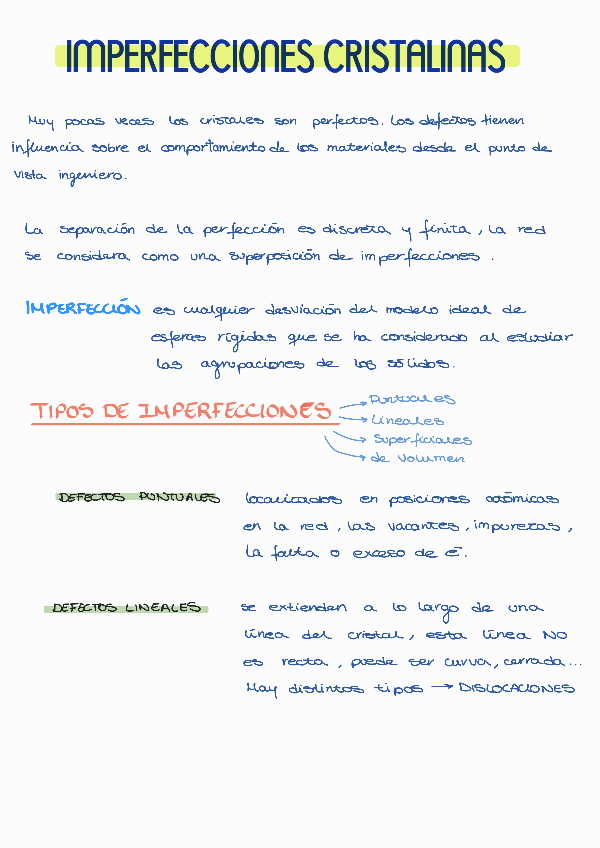 IMPERFECCIONES CRISTALINAS
Muy pocas veces los cristales son perfectos. Los defectos tienen
influencia sobre el comportamiento de los materiales desde el punto de
vista ingeniero.
La separación de la perfección es discreta y finita, la red
se considera como una superposición de imperfecciones.
IMPERFECCIÓN es cualquier desviación del modelo ideal de
esferas rígidas que se ha considerado al estudiar
las agrupaciones de los sólidos.
TIPOS DE IMPERFECCIONES
Puntuales
Lineales
Superficiales
de Volumen
DEFECTOS PUNTUALES localizados en posiciones atómicas
en la red, las vacantes, impurezas,
la falta o exceso de e⁻.
DEFECTOS LINEALES se extienden a lo largo de una
línea del cristal, esta línea NO
es recta, puede ser curva, cerrada...
Hay distintos tipos → DISLOCACIONES